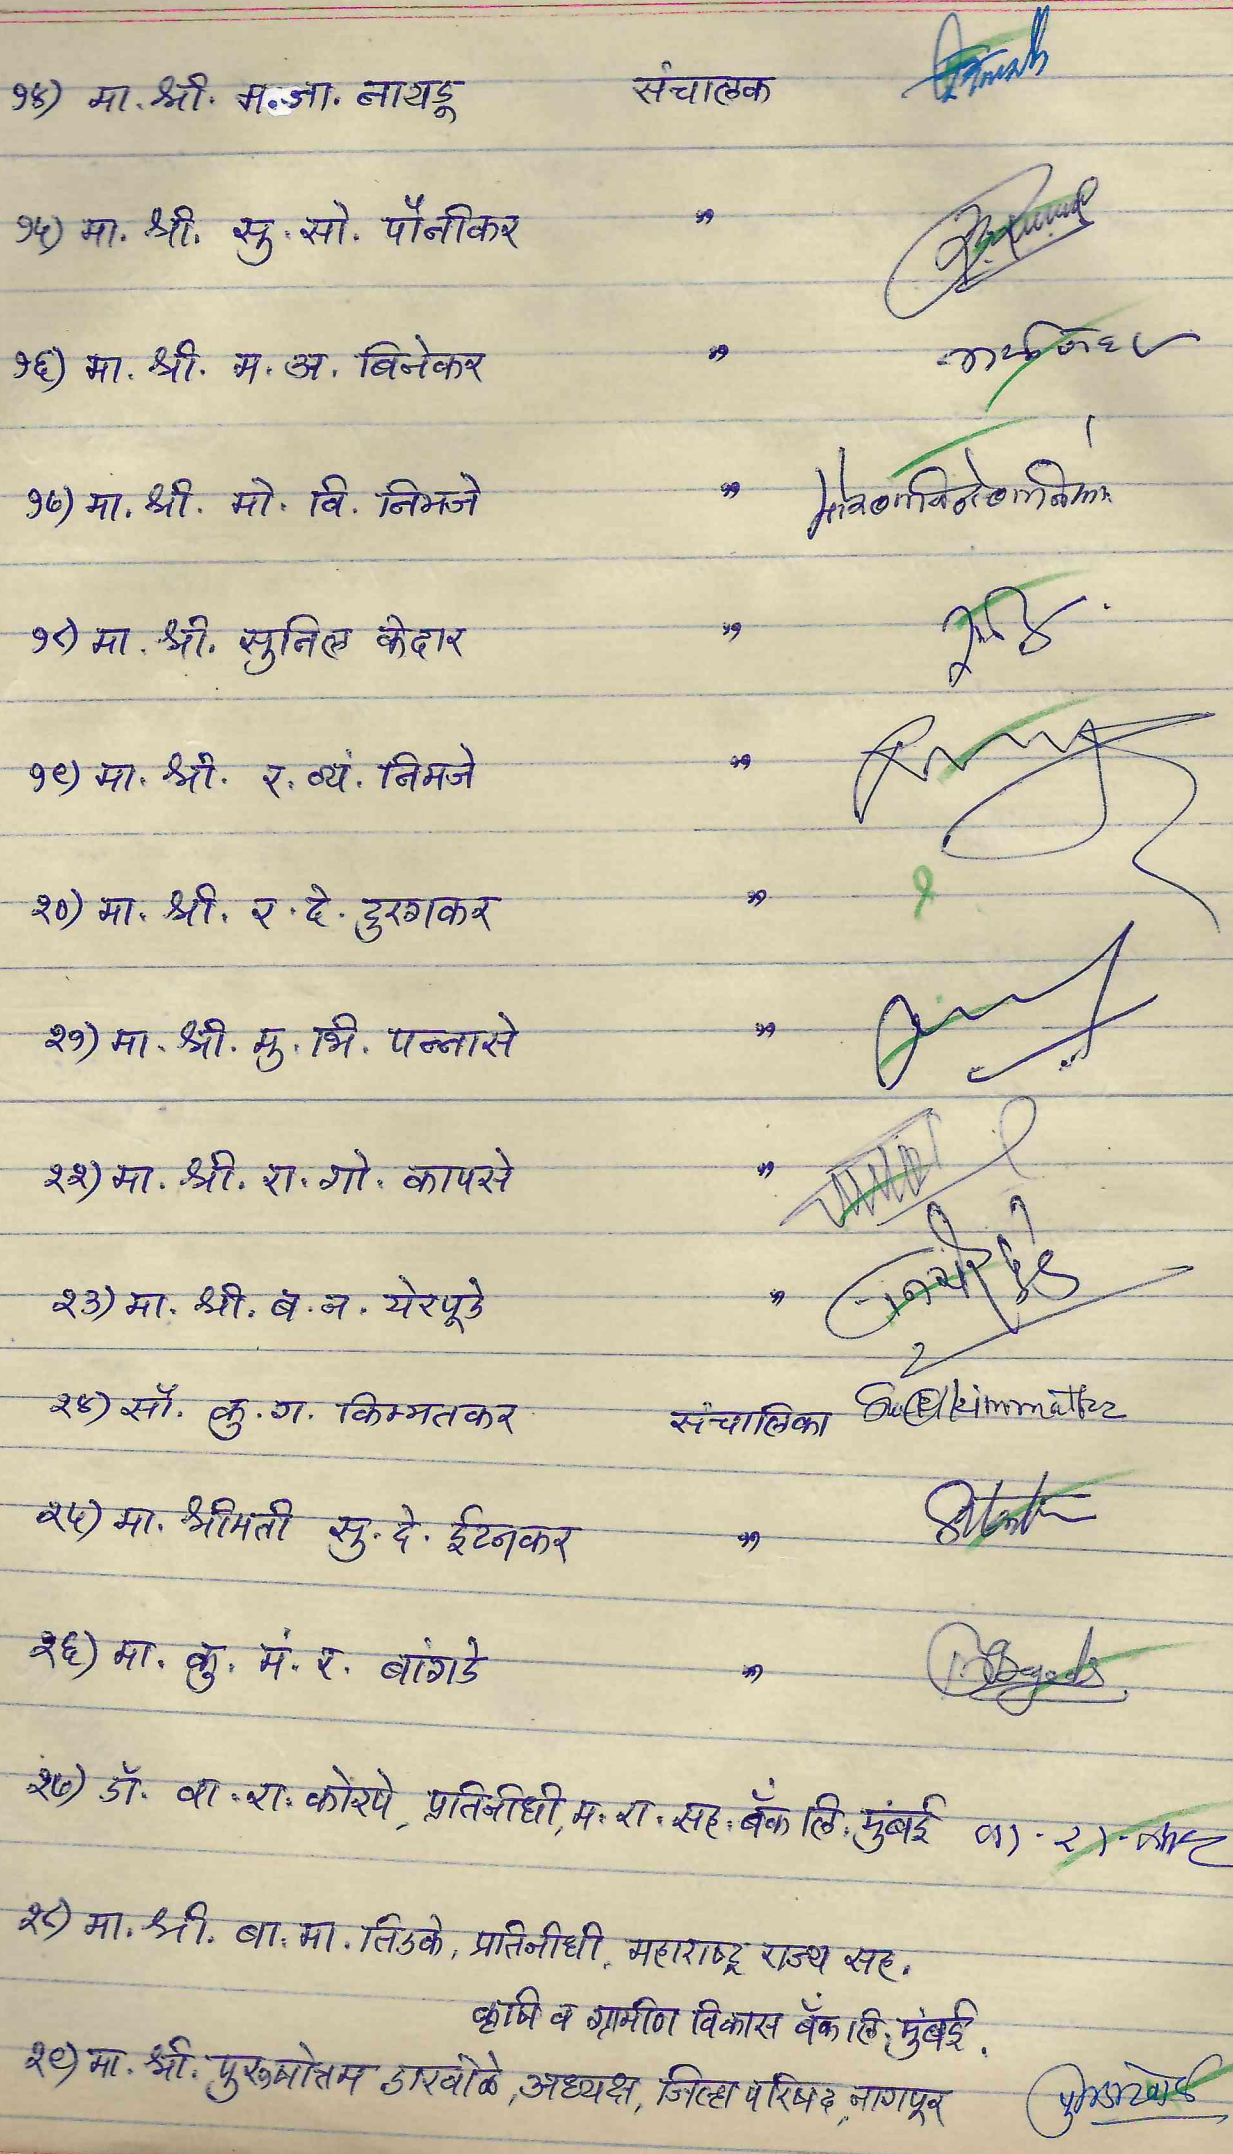 १४) मा. श्री. म. जा. नायडू संचालक
१५) मा. श्री. सु. सो. पौनीकर "
१६) मा. श्री. म. अ. बिनेकर "
१७) मा. श्री. मो. वि. निमजे "
१८) मा. श्री. सुनिल केदार "
१९) मा. श्री. र. व्यं. निमजे "
२०) मा. श्री. र. दे. दुरुगकर "
२१) मा. श्री. मु. भि. पन्नासे "
२२) मा. श्री. रा. गो. कापसे "
२३) मा. श्री. ब. न. येरपूडे "
२४) सौ. कु. ग. किम्मतकर संचालिका
२५) मा. श्रीमती सु. दे. ईटनकर "
२६) मा. कु. मं. र. बांगडे "
२७) डॉ. वा. रा. कोरपे, प्रतिनीधी, म. रा. सह. बँक लि. मुंबई
२८) मा. श्री. बा. मा. तिडके, प्रतिनीधी, महाराष्ट्र राज्य सह.
कृषि व ग्रामीण विकास बँक लि. मुंबई.
२९) मा. श्री. पुरुषोत्तम डाखोळे, अध्यक्ष, जिल्हा परिषद, नागपूर